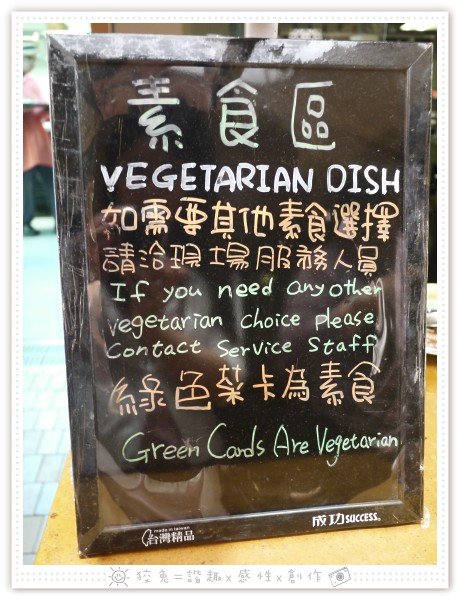 素食區
VEGETARIAN DISH
如需要其他素食選擇
請洽現場服務人員
If you need any other
vegetarian choice please
Contact Service Staff
綠色菜卡為素食
Green Cards Are Vegetarian
made in taiwan
台灣精品
成功SUCCESS®
狡兔=諧趣x感性x創作